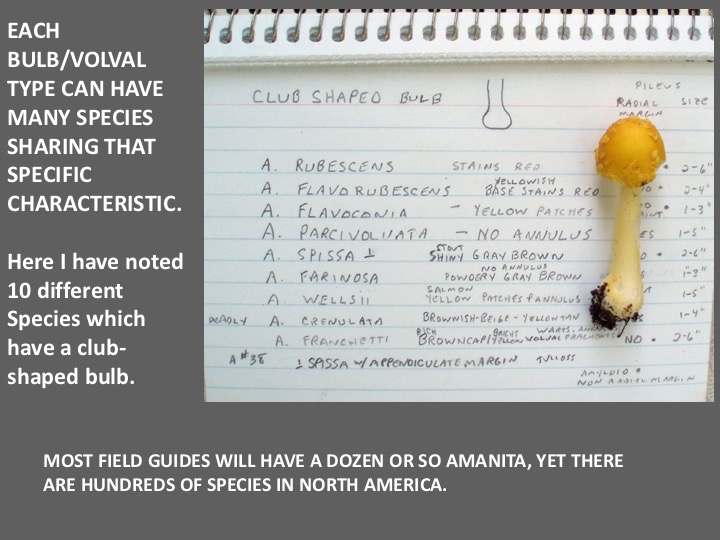 EACH
BULB/VOLVAL
TYPE CAN HAVE
MANY SPECIES
SHARING THAT
SPECIFIC
CHARACTERISTIC.
Here I have noted
10 different
Species which
have a club-
shaped bulb.
CLUB SHAPED BULB
PILEUS
RADIAL MARGIN SIZE
A. RUBESCENS STAINS RED • 2-6"
A. FLAVORUBESCENS YELLOWISH BASE STAINS RED NO • 2-4"
A. FLAVOCONIA - YELLOW PATCHES • 1-3"
A. PARCIVOLVATA - NO ANNULUS 1-5"
A. SPISSA ⊥ STOUT SHINY GRAY BROWN • 2-6"
A. FARINOSA NO ANNULUS POWDERY GRAY BROWN 1-3"
A. WELLSII SALMON YELLOW PATCHES ANNULUS 1-5"
DEADLY A. CRENULATA BROWNISH-BEIGE-YELLOW TAN 1-4"
A. FRANCHETII RICH BROWN CAP BRIGHT YELLOW VOLVAL FRAGMENTS WARTS, NO • 2-6"
A #38 ⊥ SPISSA W/ APPENDICULATE MARGIN TULLOSS
AMYLOID •
NON RADIAL MARGIN
MOST FIELD GUIDES WILL HAVE A DOZEN OR SO AMANITA, YET THERE
ARE HUNDREDS OF SPECIES IN NORTH AMERICA.